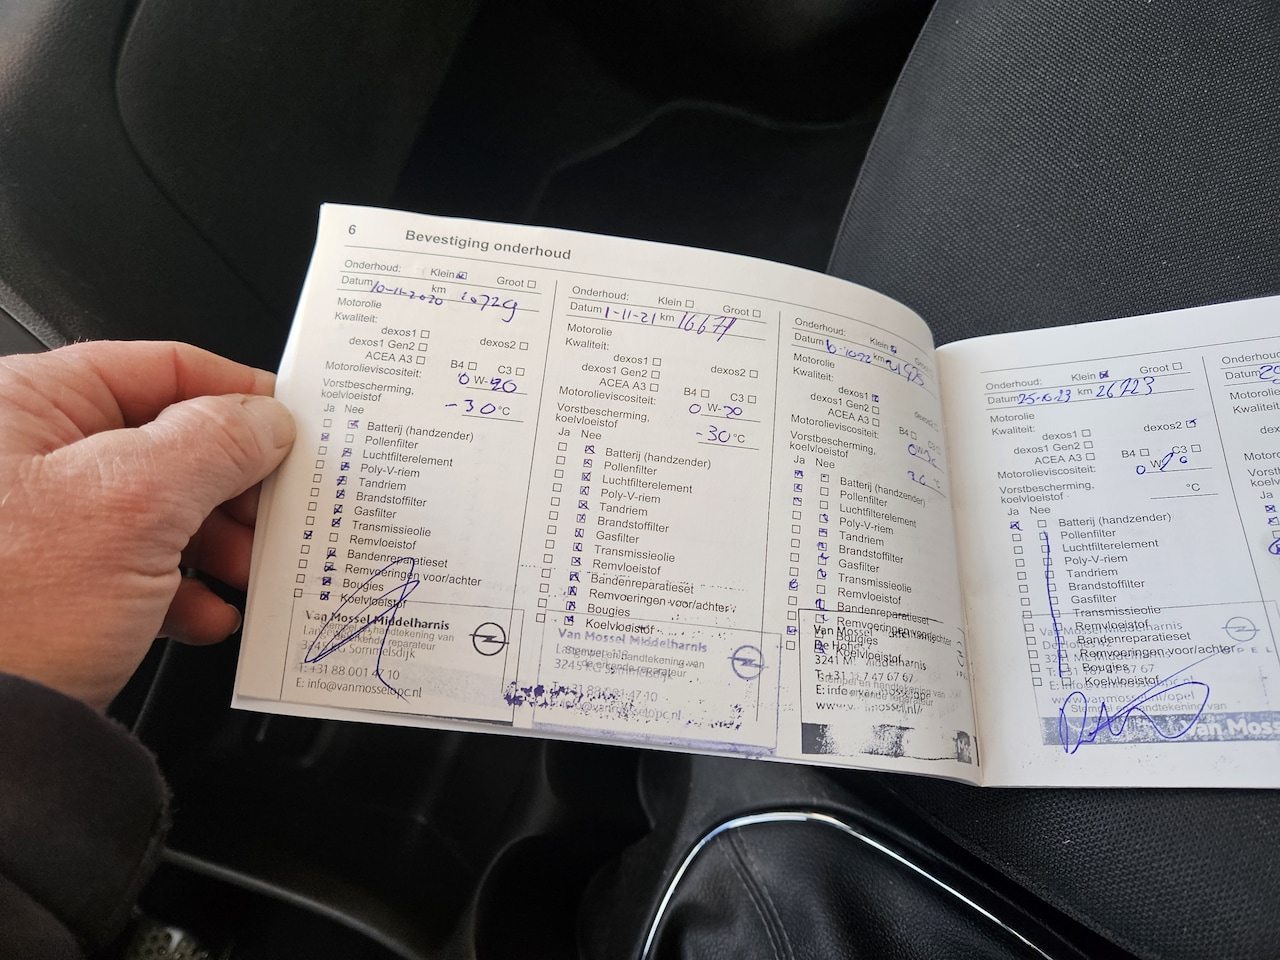 6 Bevestiging onderhoud
Onderhoud: Klein Groot
Datum 10-11-2020 km 10729
Motorolie
Kwaliteit:
dexos1
dexos2
dexos1 Gen2
ACEA A3 B4 C3
Motorolieviscositeit: 0 W-20
Vorstbescherming,
koelvloeistof -30 °C
Ja Nee
Batterij (handzender)
Pollenfilter
Luchtfilterelement
Poly-V-riem
Tandriem
Brandstoffilter
Gasfilter
Transmissieolie
Remvloeistof
Bandenreparatieset
Remvoeringen voor/achter
Bougies
Koelvloeistof
Van Mossel Middelharnis
Stempel en handtekening van
de erkende
reparateur
Sommelsdijk
T: +31 88 001 47 10
E: info@vanmosselopc.nl
Onderhoud: Klein Groot
Datum 1-11-21 km 16671
Motorolie
Kwaliteit:
dexos1
dexos2
dexos1 Gen2
ACEA A3 B4 C3
Motorolieviscositeit: 0 W-20
Vorstbescherming,
koelvloeistof -30 °C
Ja Nee
Batterij (handzender)
Pollenfilter
Luchtfilterelement
Poly-V-riem
Tandriem
Brandstoffilter
Gasfilter
Transmissieolie
Remvloeistof
Bandenreparatieset
Remvoeringen voor/achter
Bougies
Koelvloeistof
Van Mossel Middelharnis
Stempel en handtekening van
de erkende reparateur
Sommelsdijk
47 10
E: info@vanmosselopc.nl
Onderhoud: Klein
Datum km
Motorolie
Kwaliteit:
dexos1
dexos1 Gen2
ACEA A3 B4
Motorolieviscositeit:
Vorstbescherming,
koelvloeistof
Ja Nee
Batterij (handzender)
Pollenfilter
Luchtfilterelement
Poly-V-riem
Tandriem
Brandstoffilter
Gasfilter
Transmissieolie
Remvloeistof
Bandenreparatieset
Remvoeringen voor/achter
Bougies
Koelvloeistof
Van Mossel
Stempel en handtekening van
Onderhoud: Klein Groot
Datum 25-10-23 km 26723
Motorolie
Kwaliteit:
dexos1
dexos2
dexos1 Gen2
ACEA A3 B4 C3
Motorolieviscositeit: 0 W
Vorstbescherming,
koelvloeistof °C
Ja Nee
Batterij (handzender)
Pollenfilter
Luchtfilterelement
Poly-V-riem
Tandriem
Brandstoffilter
Gasfilter
Transmissieolie
Remvloeistof
Bandenreparatieset
Remvoeringen voor/achter
Bougies
Koelvloeistof
www.vanmossel.nl/opel
Stempel en handtekening van
Van Moss
Datum
Kwaliteit